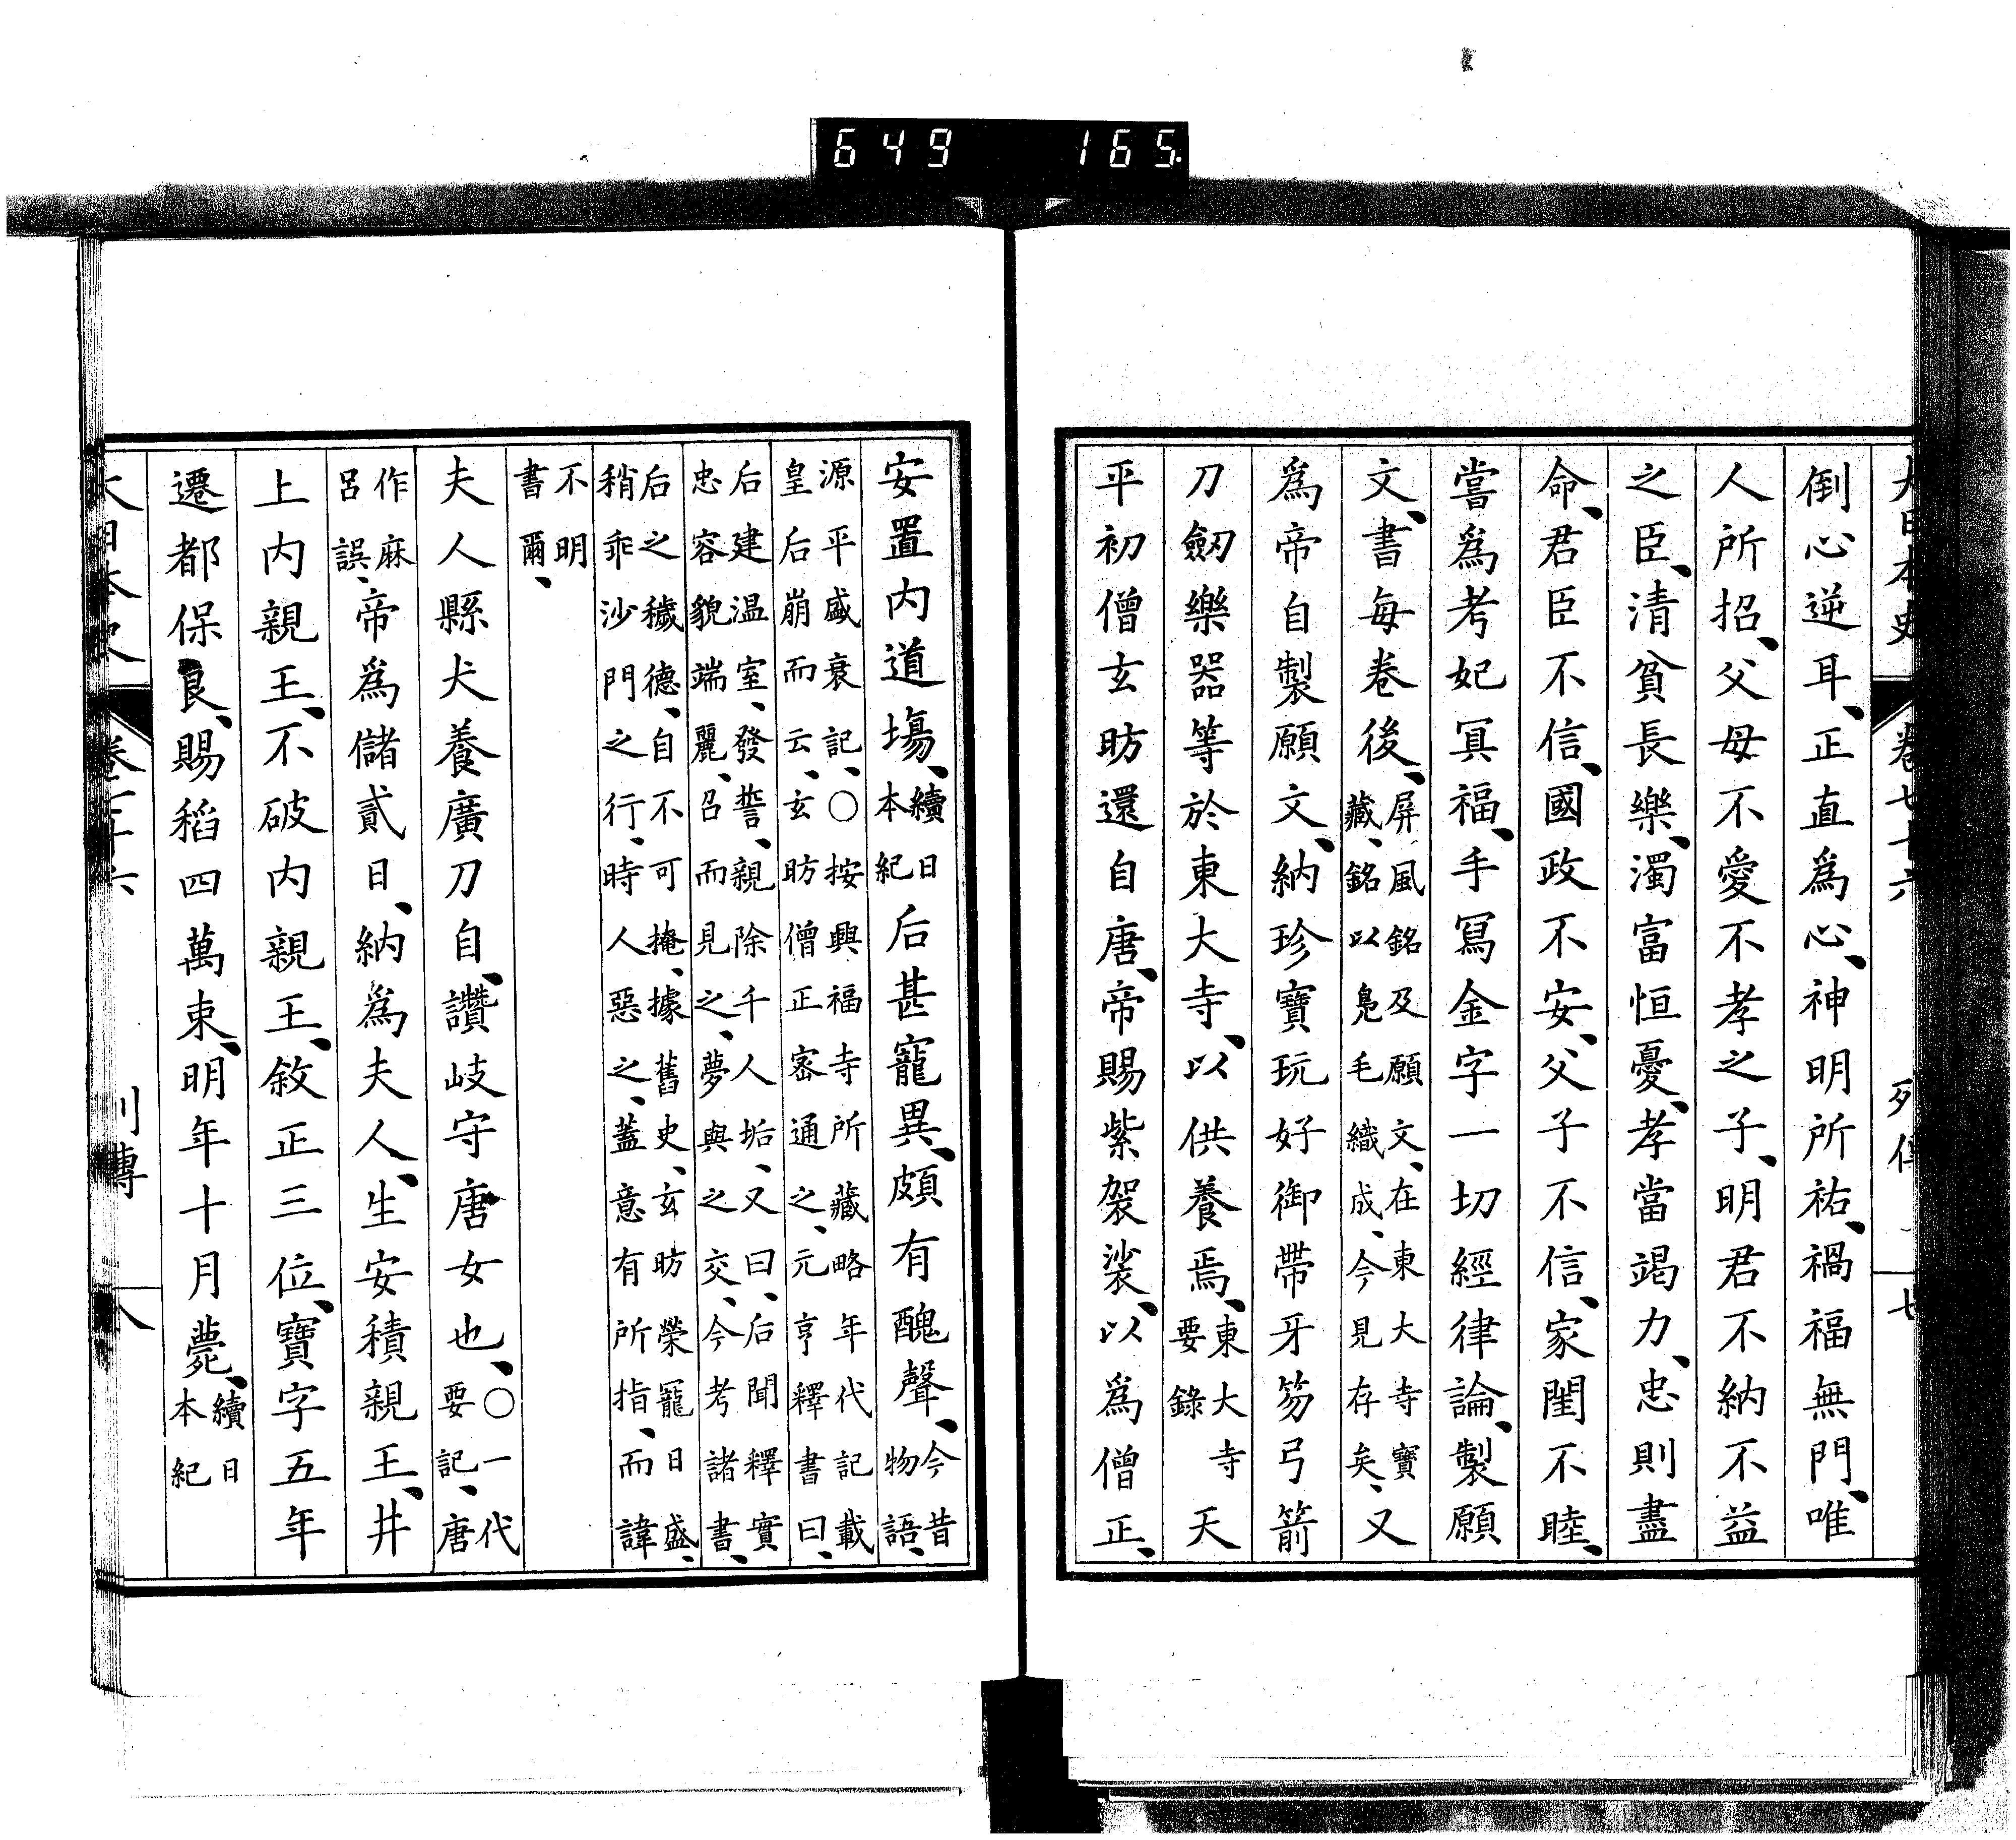 649
165
大日本史 卷七十六 列傳 七
倒心逆耳、正直爲心、神明所祐、禍福無門、唯
人所招、父母不愛不孝之子、明君不納不益
之臣、清貧長樂、濁富恒憂、孝當竭力、忠則盡
命、君臣不信、國政不安、父子不信、家閨不睦、
嘗爲考妃冥福、手冩金字一切經律論、製願
文、書每卷後、屏風銘及願文、在東大寺寶藏、銘以鳬毛織成、今見存矣、又
爲帝自製願文、納珍寶玩好御帶牙笏弓箭
刀劔樂器等於東大寺、以供養焉、東大寺要錄 天
平初僧玄昉還自唐、帝賜紫袈裟、以爲僧正、
安置内道塲、續日本紀 后甚寵異、頗有醜聲、今昔物語、
源平盛衰記、○按興福寺所藏略年代記載
皇后崩而云、玄昉僧正密通之、元亨釋書曰、
后建温室、發誓、親除千人垢、又曰、后聞釋實
忠容貌端麗、召而見之、夢與之交、今考諸書、
后之穢德、自不可掩、據舊史、玄昉榮寵日盛、
稍乖沙門之行、時人惡之、蓋意有所指、而諱
不明
書爾、
夫人縣犬養廣刀自、讚岐守唐女也、○一代要記、唐
作麻呂誤、帝爲儲貳日、納爲夫人、生安積親王、井
上内親王、不破内親王、敘正三位、寶字五年
遷都保良、賜稻四萬束、明年十月薨、續日本紀
大日本史 卷七十六 列傳 八